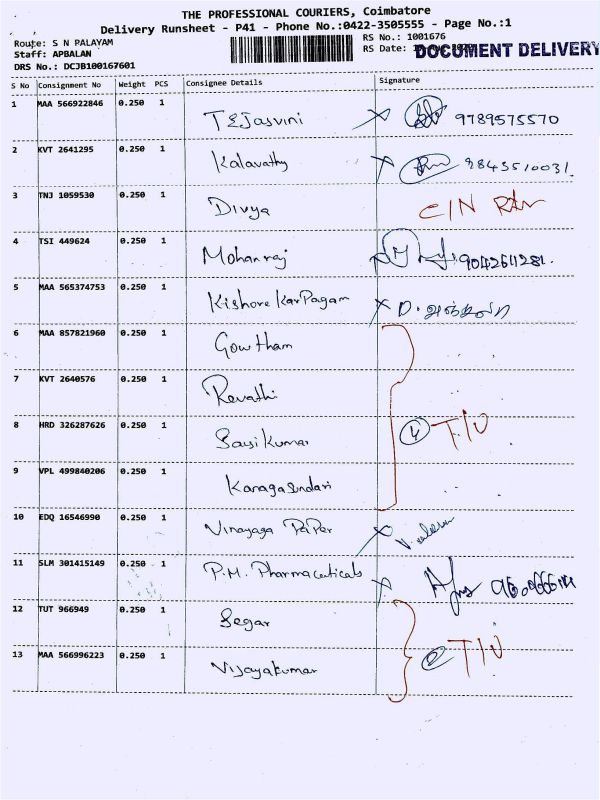 THE PROFESSIONAL COURIERS, Coimbatore
Delivery Runsheet - P41 - Phone No.:0422-3505555 - Page No.:1
Route: S N PALAYAM
RS No.: 1001676
Staff: APBALAN
RS Date:
DOCUMENT DELIVERY
DRS No.: DCJB100167601
S No Consignment No Weight PCS Consignee Details Signature
1 MAA 566922846 0.250 1 TEJasvini 9789575570
2 KVT 2641295 0.250 1 Kalavathy 9843510031
3 TNJ 1059530 0.250 1 Divya C/N
4 TSI 449624 0.250 1 Mohanraj 9042611281.
5 MAA 565374753 0.250 1 Kishore KarPagam D.
6 MAA 857821960 0.250 1 Gowtham
7 KVT 2640576 0.250 1 Revathi
8 HRD 326287626 0.250 1 SasiKumar 4 T.I.U
9 VPL 499840206 0.250 1 Kanagasundari
10 EDQ 16546990 0.250 1 Vinayaga PaPer
11 SLM 301415149 0.250 1 P.M. Pharmaceuticals
12 TUT 966949 0.250 1 Segar
13 MAA 566996223 0.250 1 Vijayakumar 2 T.I.U